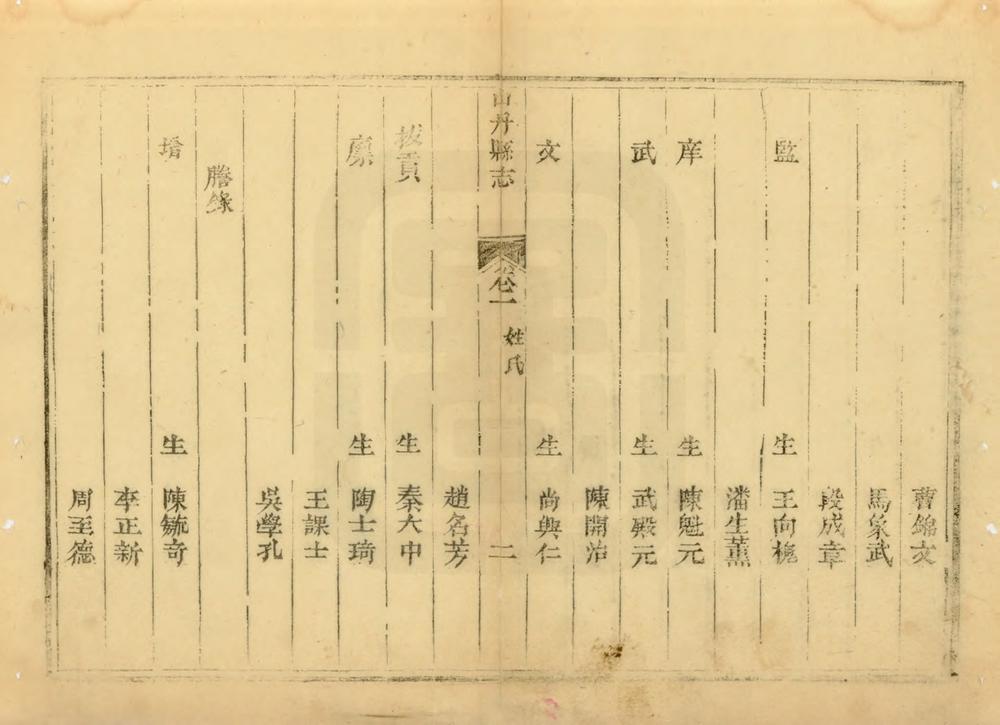 曹錦文
馬象武
段成章
監 生 王向槐
潘生薰
庠 生 陳魁元
武 生 武殿元
陳開治
文 生 尚興仁
山丹縣志 卷一 姓氏 二
趙名芳
拔貢 生 秦大中
廪 生 陶士琦
王課士
吳學孔
謄錄
增 生 陳毓奇
李正新
周至德